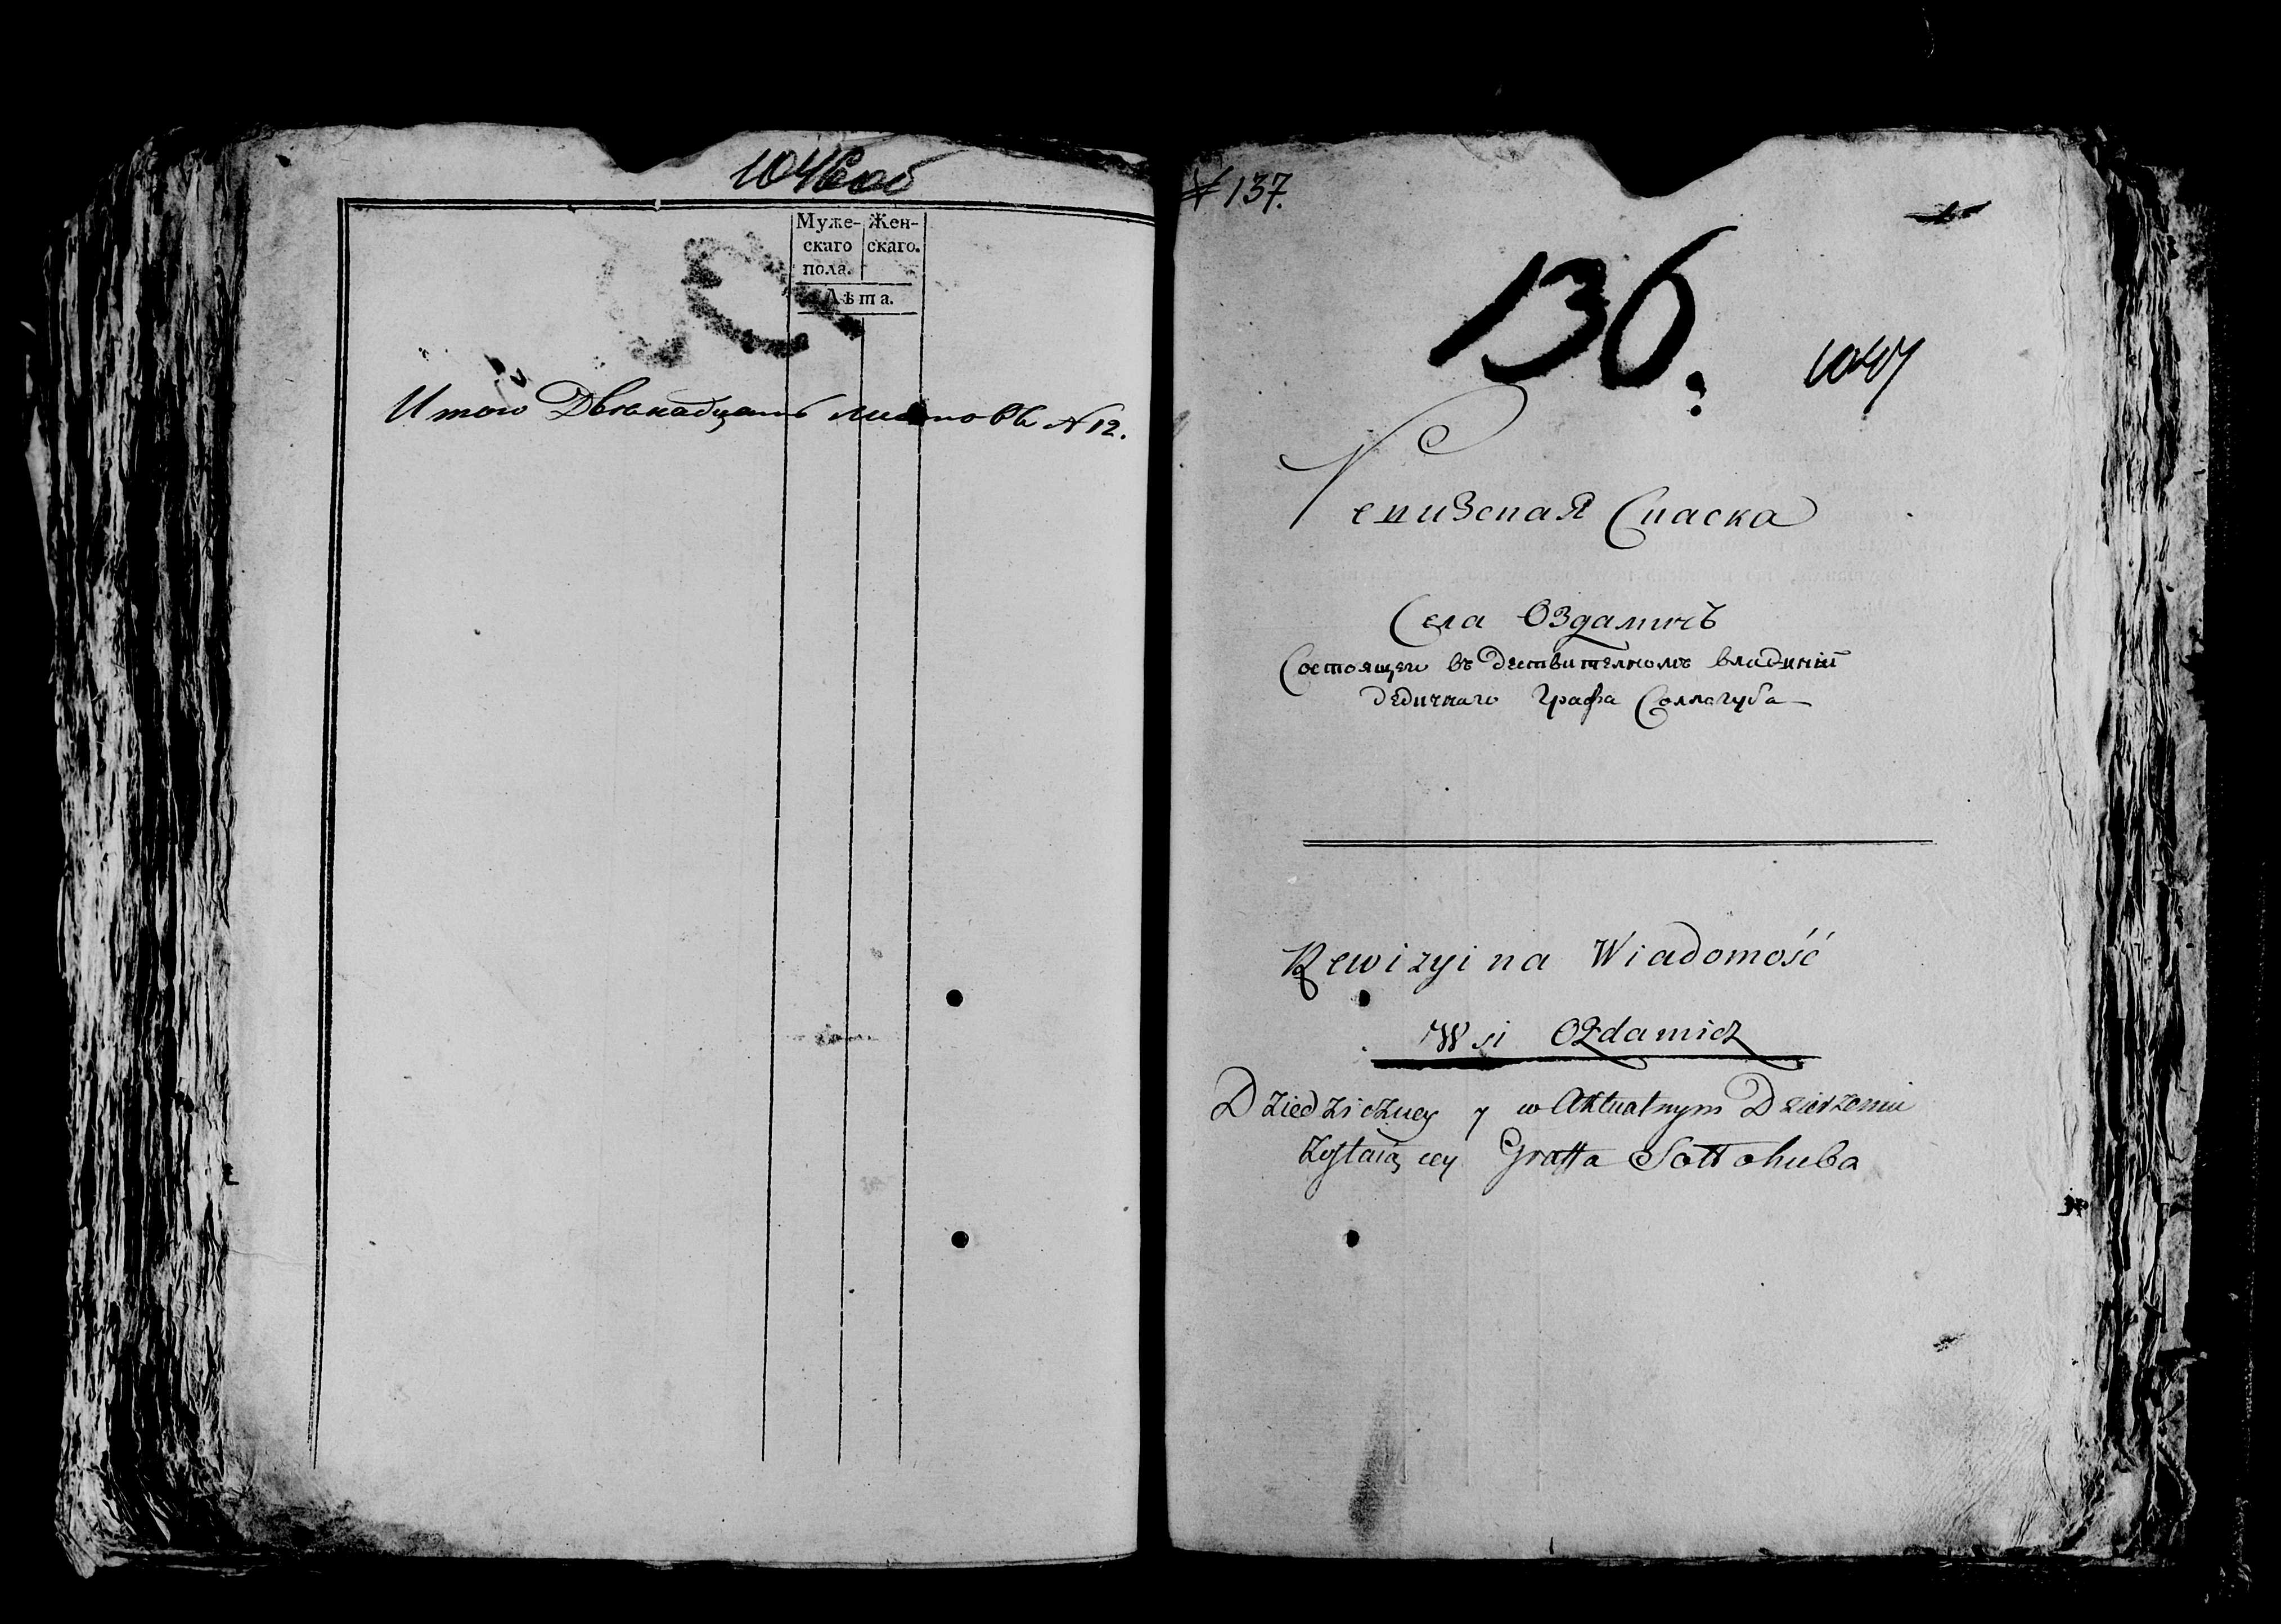 1046 об
Муже- Жен-
скаго скаго.
пола.
Лѣта.
Итого Двенадцать листовъ N 12.
# 137.
136.
1047
Ревизская Спаска
Села Оздамичъ
Состоящей въ деиствителномъ владиніи
дѣдичнаго Графа Соллогуба
Rewizyina Wiadomość
Wsi Ozdamicz
Dziedziczney y w Aktualnym Dzierzeniu
Zostaiącey Graffa Sołłohuba